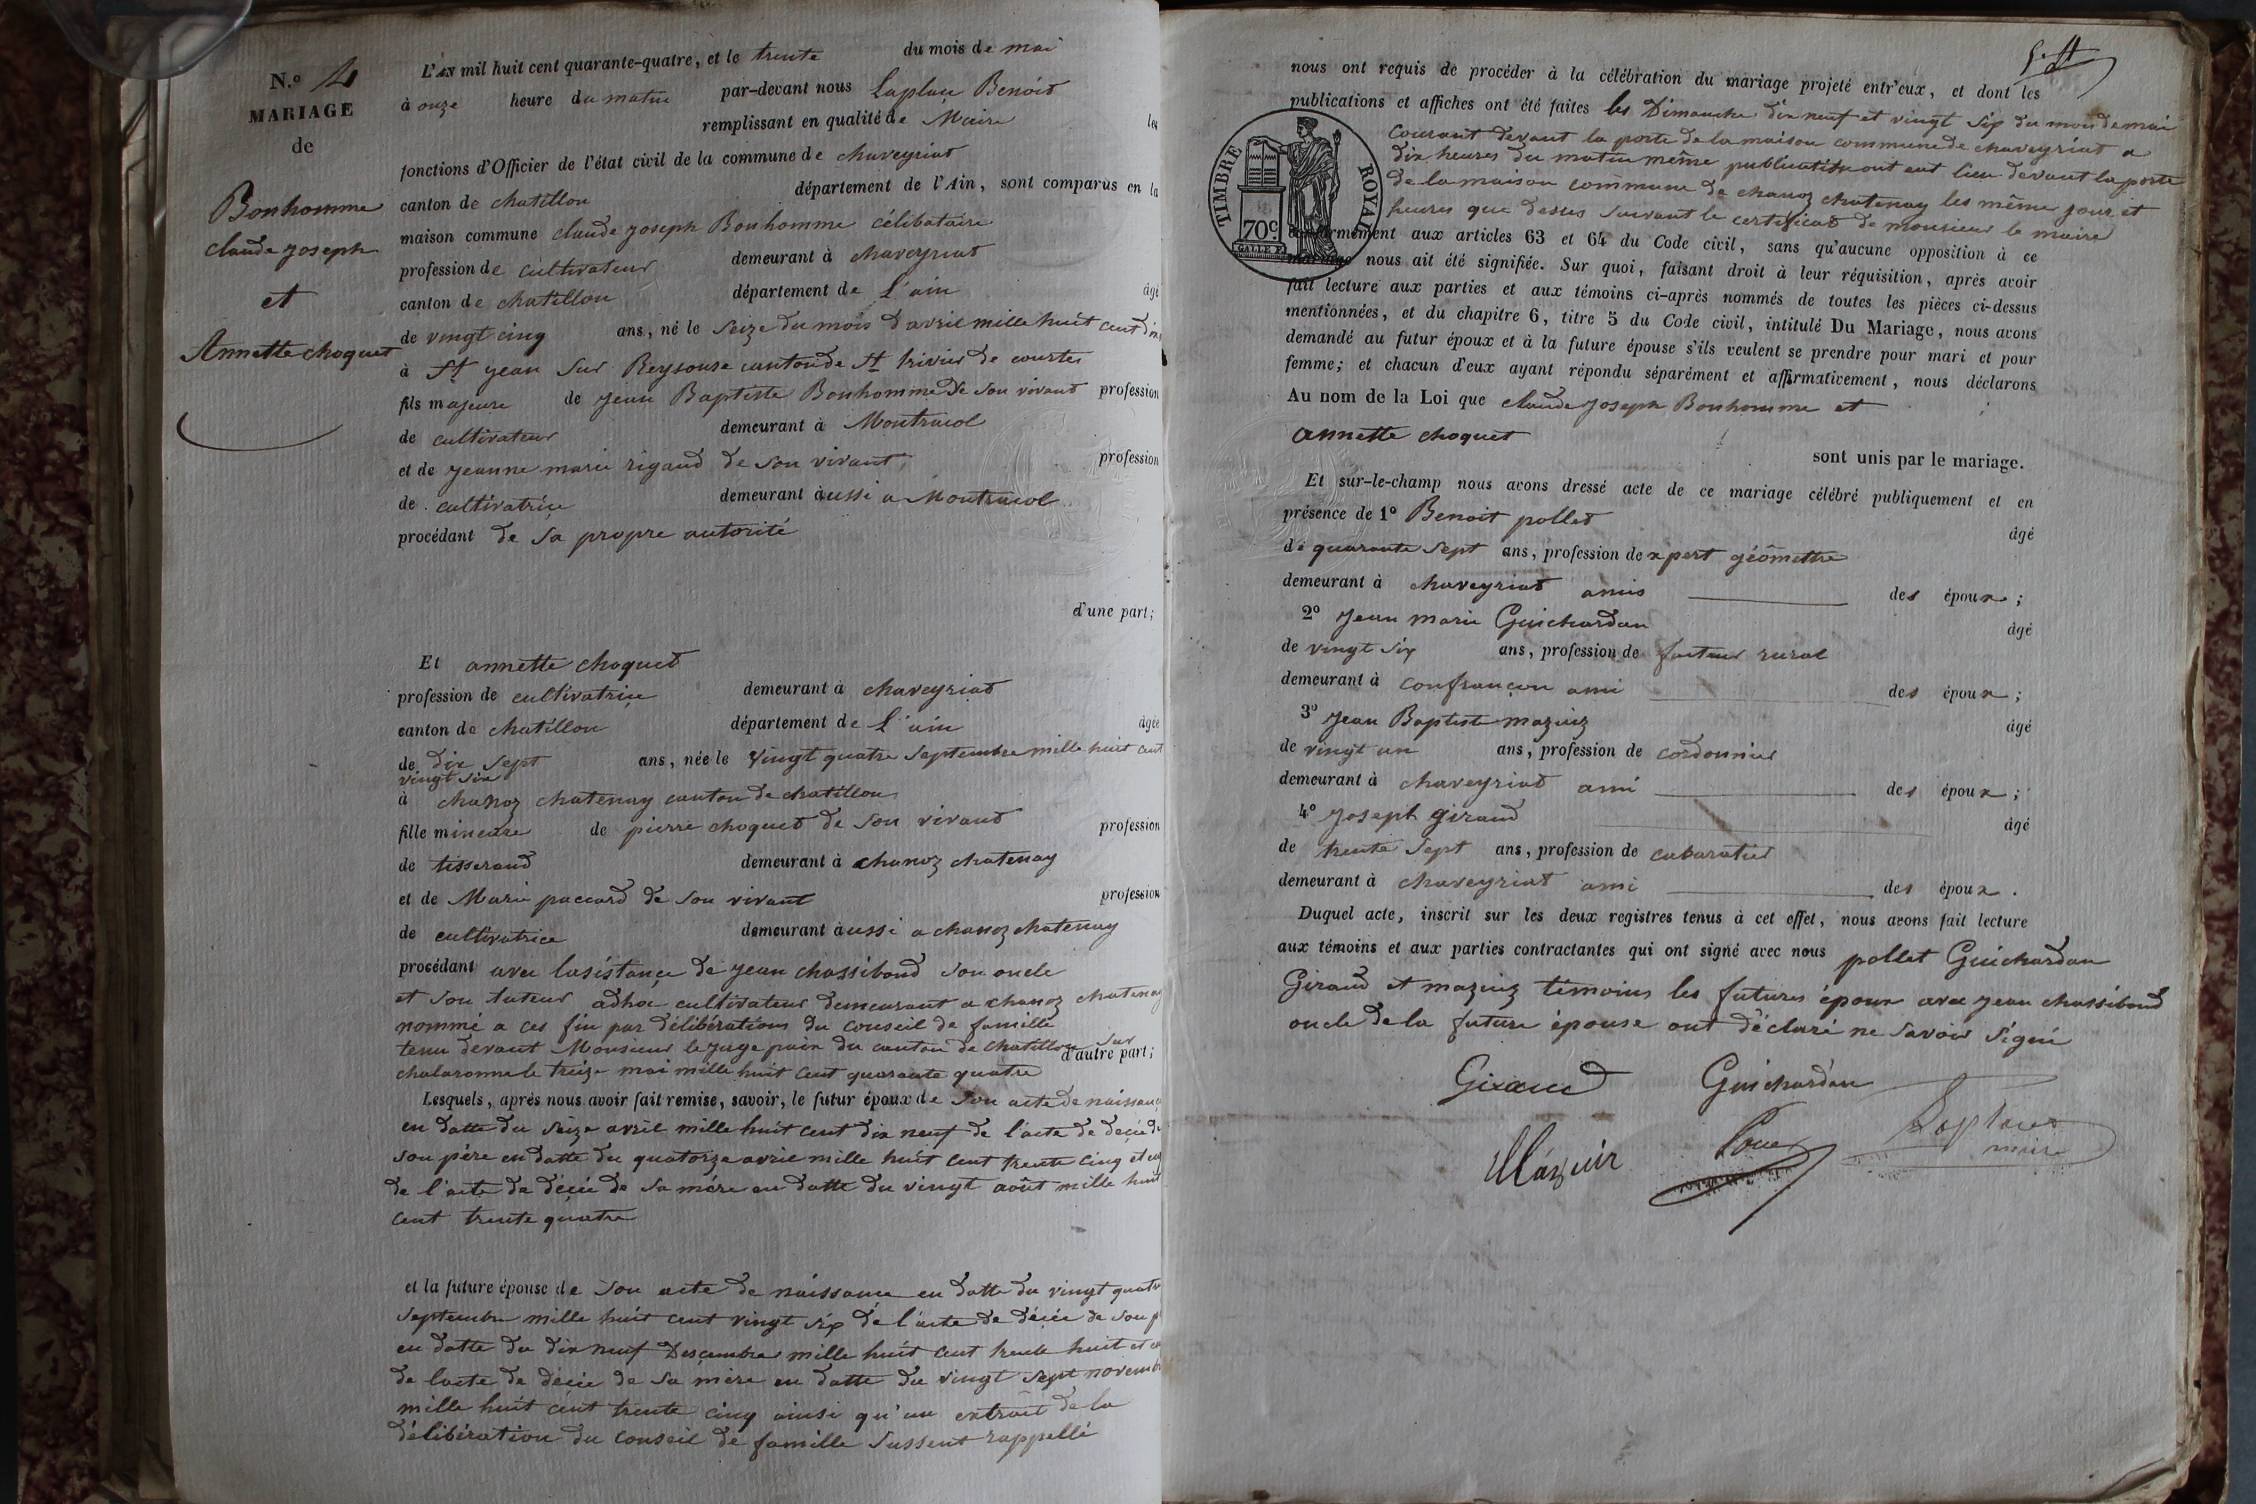 N.º 4
MARIAGE
de
Bonhomme
claude joseph
et
Annette choquet
L'AN mil huit cent quarante-quatre, et le trente du mois de mai
à onze heure du matin par-devant nous Laplace Benoit
remplissant en qualité de Maire les
fonctions d'Officier de l'état civil de la commune de chaveyriat
canton de chatillon département de l'Ain, sont comparus en la
maison commune claude joseph Bonhomme célibataire
profession de cultivateur demeurant à chaveyriat
canton de chatillon département de L'ain âgé
de vingt cinq ans, né le seize du mois d'avril mille huit cent dix
à St jean sur Reysouse canton de St trivier de courtes
fils majeure de jean Baptiste Bonhomme de son vivant profession
de cultivateur demeurant à Montracol
et de jeanne marie rigaud de son vivant profession
de cultivatrice demeurant àussi a Montracol
procédant de sa propre autorité
d'une part;
Et annette choquet
profession de cultivatrice demeurant à chaveyriat
canton de chatillon département de l'ain âgée
de dix sept ans, née le vingt quatre septembre mille huit cent
vingt six
à chanoz chatenay canton de chatillon
fille mineure de pierre choquet de son vivant profession
de tisserand demeurant à chanoz chatenay
et de Marie paccard de son vivant profession
de cultivatrice demeurant àussi a chanoz chatenay
procédant avec lasistance de jean chassiboud son oncle
et son tuteur adhoc cultivateur demeurant a chanoz chatenay
nommé a ces fin par délibérations du conseil de famille
tenu devant Monsieur le juge paix du canton de chatillon sur
d'autre part;
chalaronne le treize mai mille huit cent quarante quatre
Lesquels, après nous avoir fait remise, savoir, le futur époux de son acte de naissance
en datte du seize avril mille huit cent dix neuf de l'acte de decée de
son père en datte du quatorze avril mille huit cent trente cinq et en
de l'acte de décée de sa mére en datte du vingt août mille huit
cent trente quatre
et la future épouse de son acte de naissance en datte du vingt quatre
septembre mille huit cent vingt six de l'acte de décée de son p
en datte du dix neuf Desçembre mille huit cent trente huit et en
de lacte de décée de sa mère en datte du vingt sept novembre
mille huit cent trente cinq ainsi qu'un extrait de la
délibération du conseil de famille sussent rappellé
nous ont requis de procéder à la célébration du mariage projeté entr'eux, et dont les
publications et affiches ont été faites les Dimanche dix neuf et vingt six du mois de mai
courant devant la porte de la maison commune de chaveyriat a
dix heures du matin même publication ont eut lieu devant la porte
de la maison commune de chanoz chatenay les même jour et
heures que desses suivant le certificat de monsieur le maire
TIMBRE ROYAL
70c
conformément aux articles 63 et 64 du Code civil, sans qu'aucune opposition à ce
mariage nous ait été signifiée. Sur quoi, faisant droit à leur réquisition, après avoir
fait lecture aux parties et aux témoins ci-après nommés de toutes les pièces ci-dessus
mentionnées, et du chapitre 6, titre 5 du Code civil, intitulé Du Mariage, nous avons
demandé au futur époux et à la future épouse s'ils veulent se prendre pour mari et pour
femme; et chacun d'eux ayant répondu séparément et affirmativement, nous déclarons
Au nom de la Loi que claude joseph Bonhomme et
annette choquet
sont unis par le mariage.
Et sur-le-champ nous avons dressé acte de ce mariage célébré publiquement et en
présence de 1º Benoit pollet âgé
de quarante sept ans, profession de xpert géomettre
demeurant à chaveyriat amis des époux;
2º jean marie Guichardan âgé
de vingt six ans, profession de facteur rural
demeurant à confrançon ami des époux;
3º jean Baptiste maziriz âgé
de vingt un ans, profession de cordonnier
demeurant à chaveyriat ami des époux;
4º joseph giraud âgé
de trente sept ans, profession de cabaratier
demeurant à chaveyriat ami des époux.
Duquel acte, inscrit sur les deux registres tenus à cet effet, nous avons fait lecture
aux témoins et aux parties contractantes qui ont signé avec nous pollet Guichardan
Giraud et maziriz témoins les futures époux avec jean chassiboud
oncle de la future épouse ont déclaré ne savoir signé
Giraud Guichardan
Laplace
maire